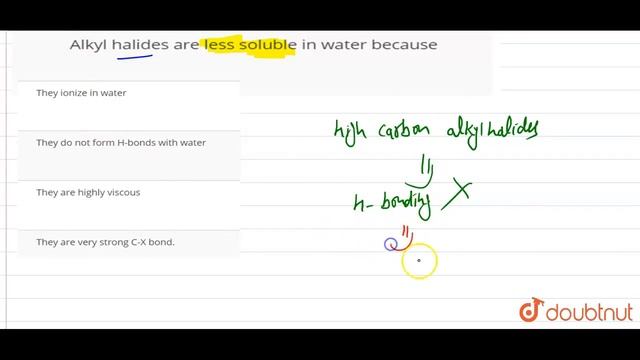 Alkyl halides are less soluble in water because
They ionize in water
They do not form H-bonds with water
They are highly viscous
They are very strong C-X bond.
high carbon alkyl halides
H-bonding X
doubtnut